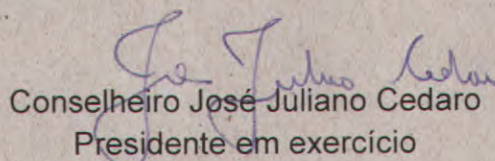 José Juliano Cedaro
Conselheiro José Juliano Cedaro
Presidente em exercício